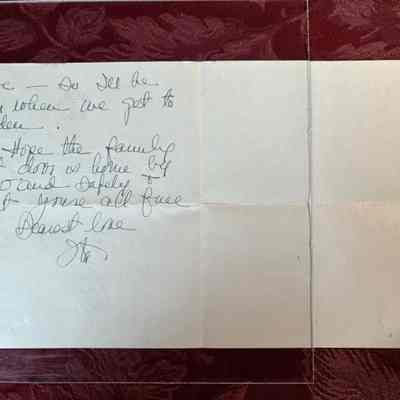 — So I'll be
when we get to
Hope the family
door is home by
and safely &
you're all fine
Dearest love